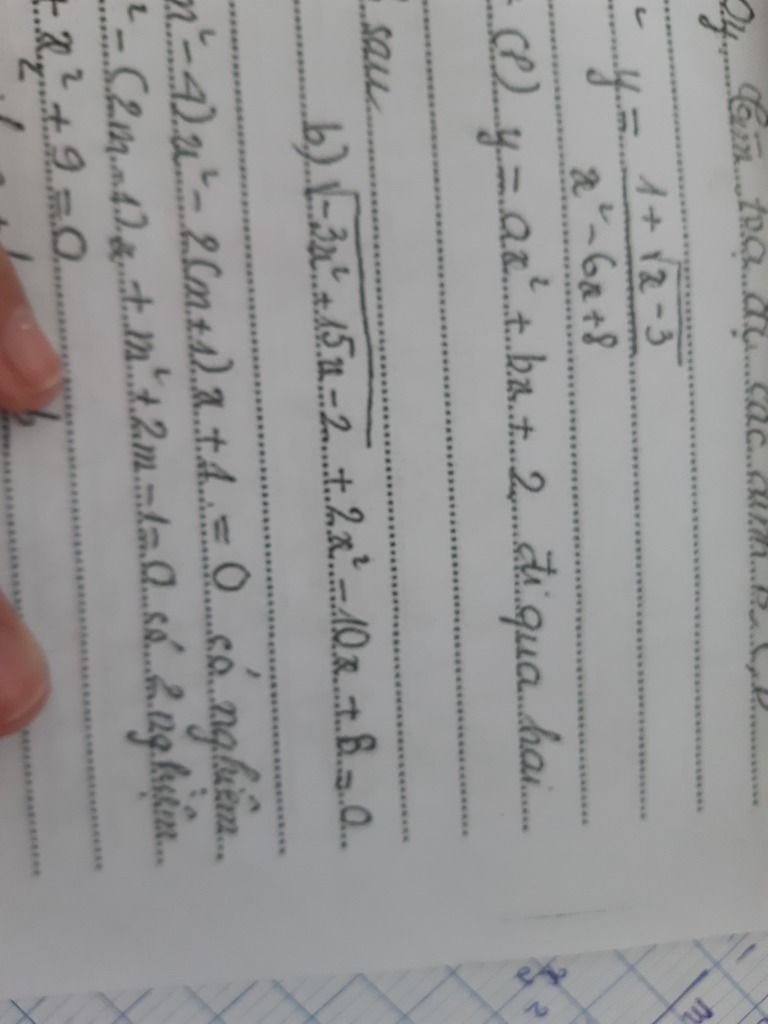 Oy tìm toạ độ các
y = (1 + √(x - 3)) / (x² - 6x + 8)
(P) y = ax² + bx + 2 đi qua hai
sau
b) √(-3x² + 15x - 2) + 2x² - 10x + 8 = 0
m² - 4)x² - 2(m+1)x + 1 = 0 có nghiệm
² - (2m - 1)x + m² + 2m - 1 = 0 có 2 nghiệm
+ x₂² + 9 = 0